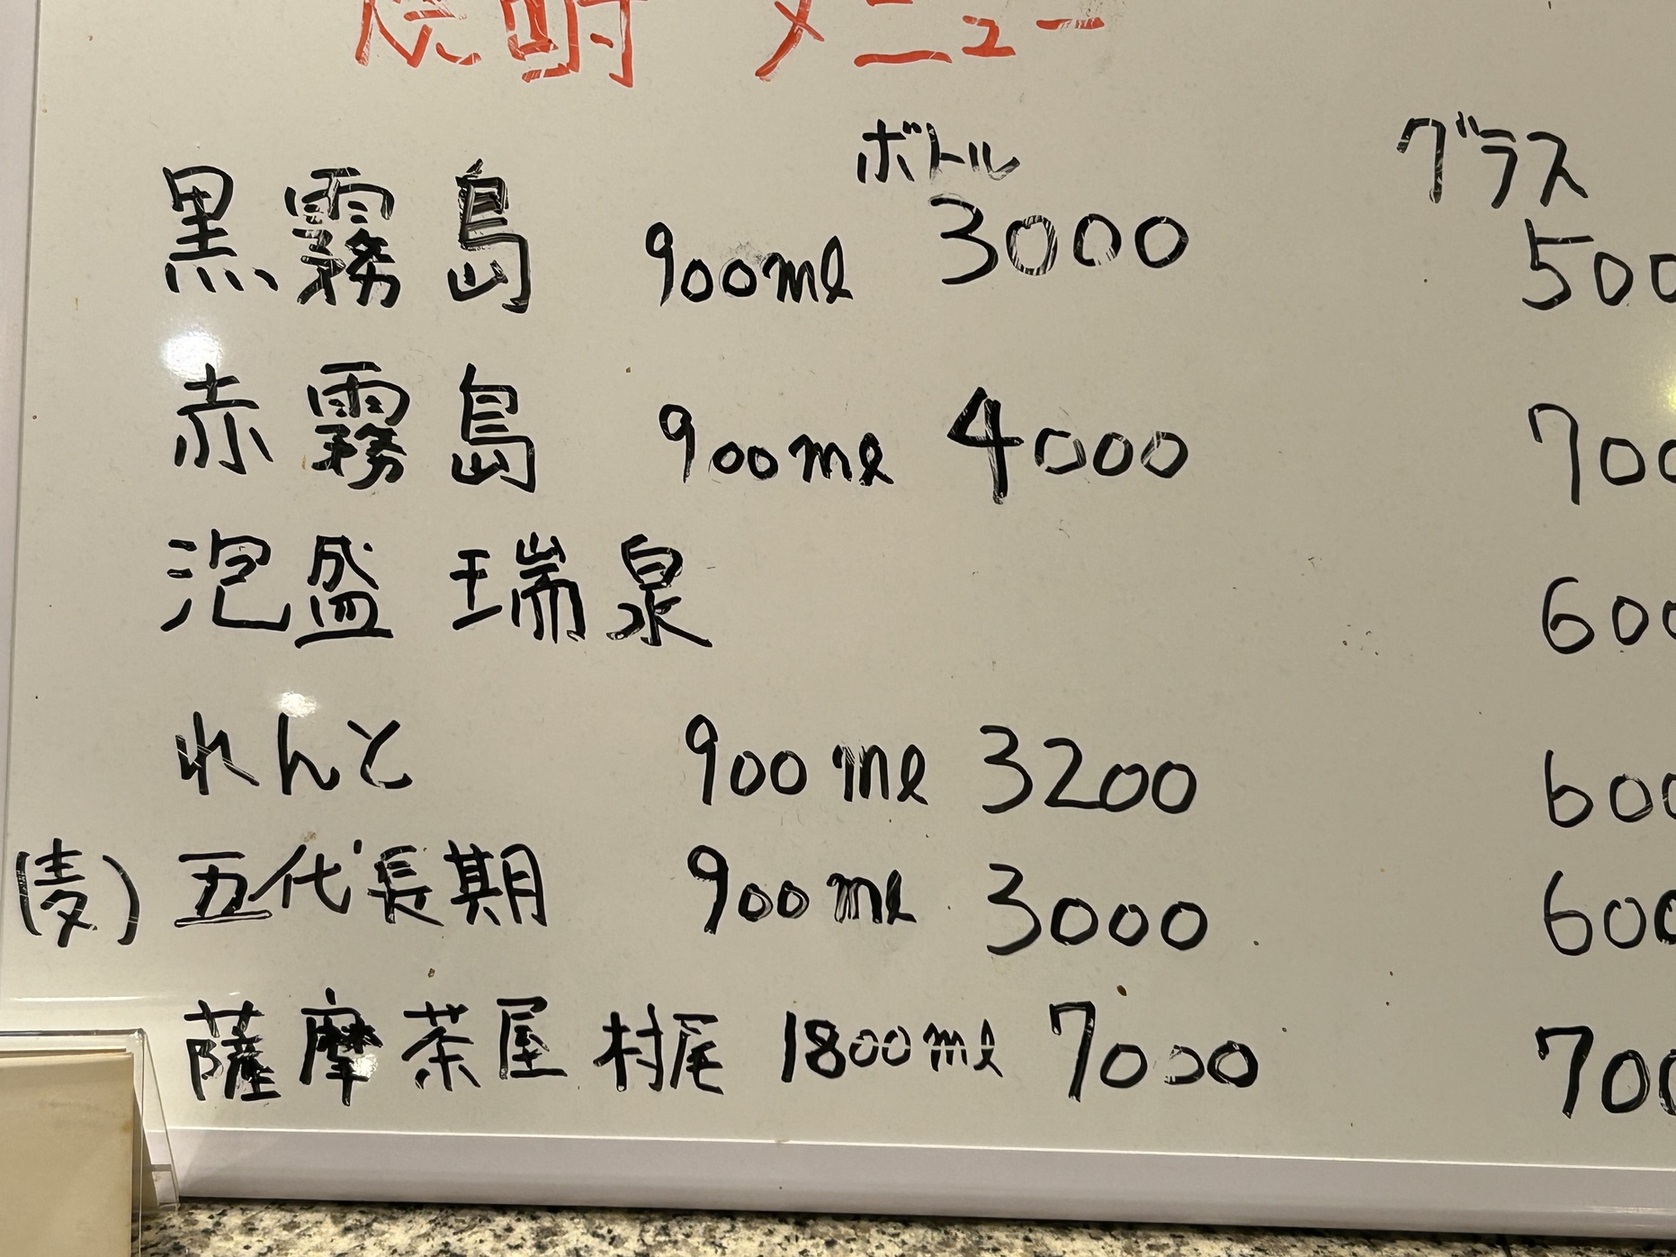 焼酎 メニュー
ボトル グラス
黒霧島 900ml 3000 500
赤霧島 900ml 4000 700
泡盛 瑞泉 600
れんと 900ml 3200 600
(麦) 五代長期 900ml 3000 600
薩摩茶屋 村尾 1800ml 7000 700